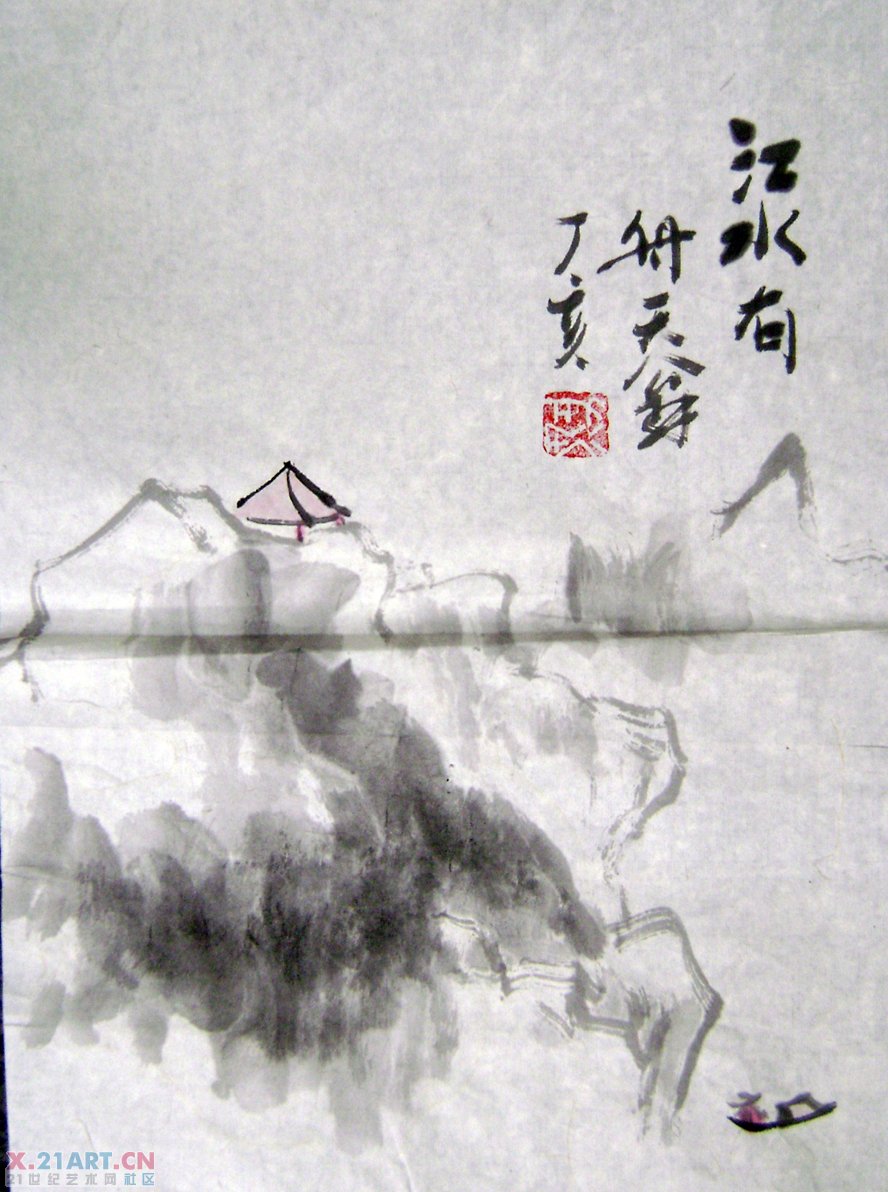 江水有
天
丁亥
X.21ART.CN
21世纪艺术网社区